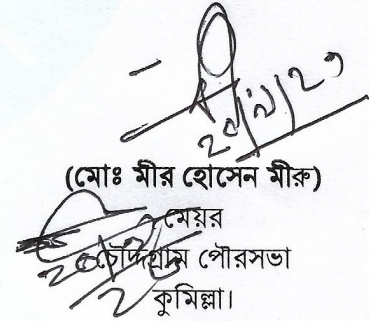 (মোঃ মীর হোসেন মীরু)
মেয়র
চৌদ্দগ্রাম পৌরসভা
কুমিল্লা।